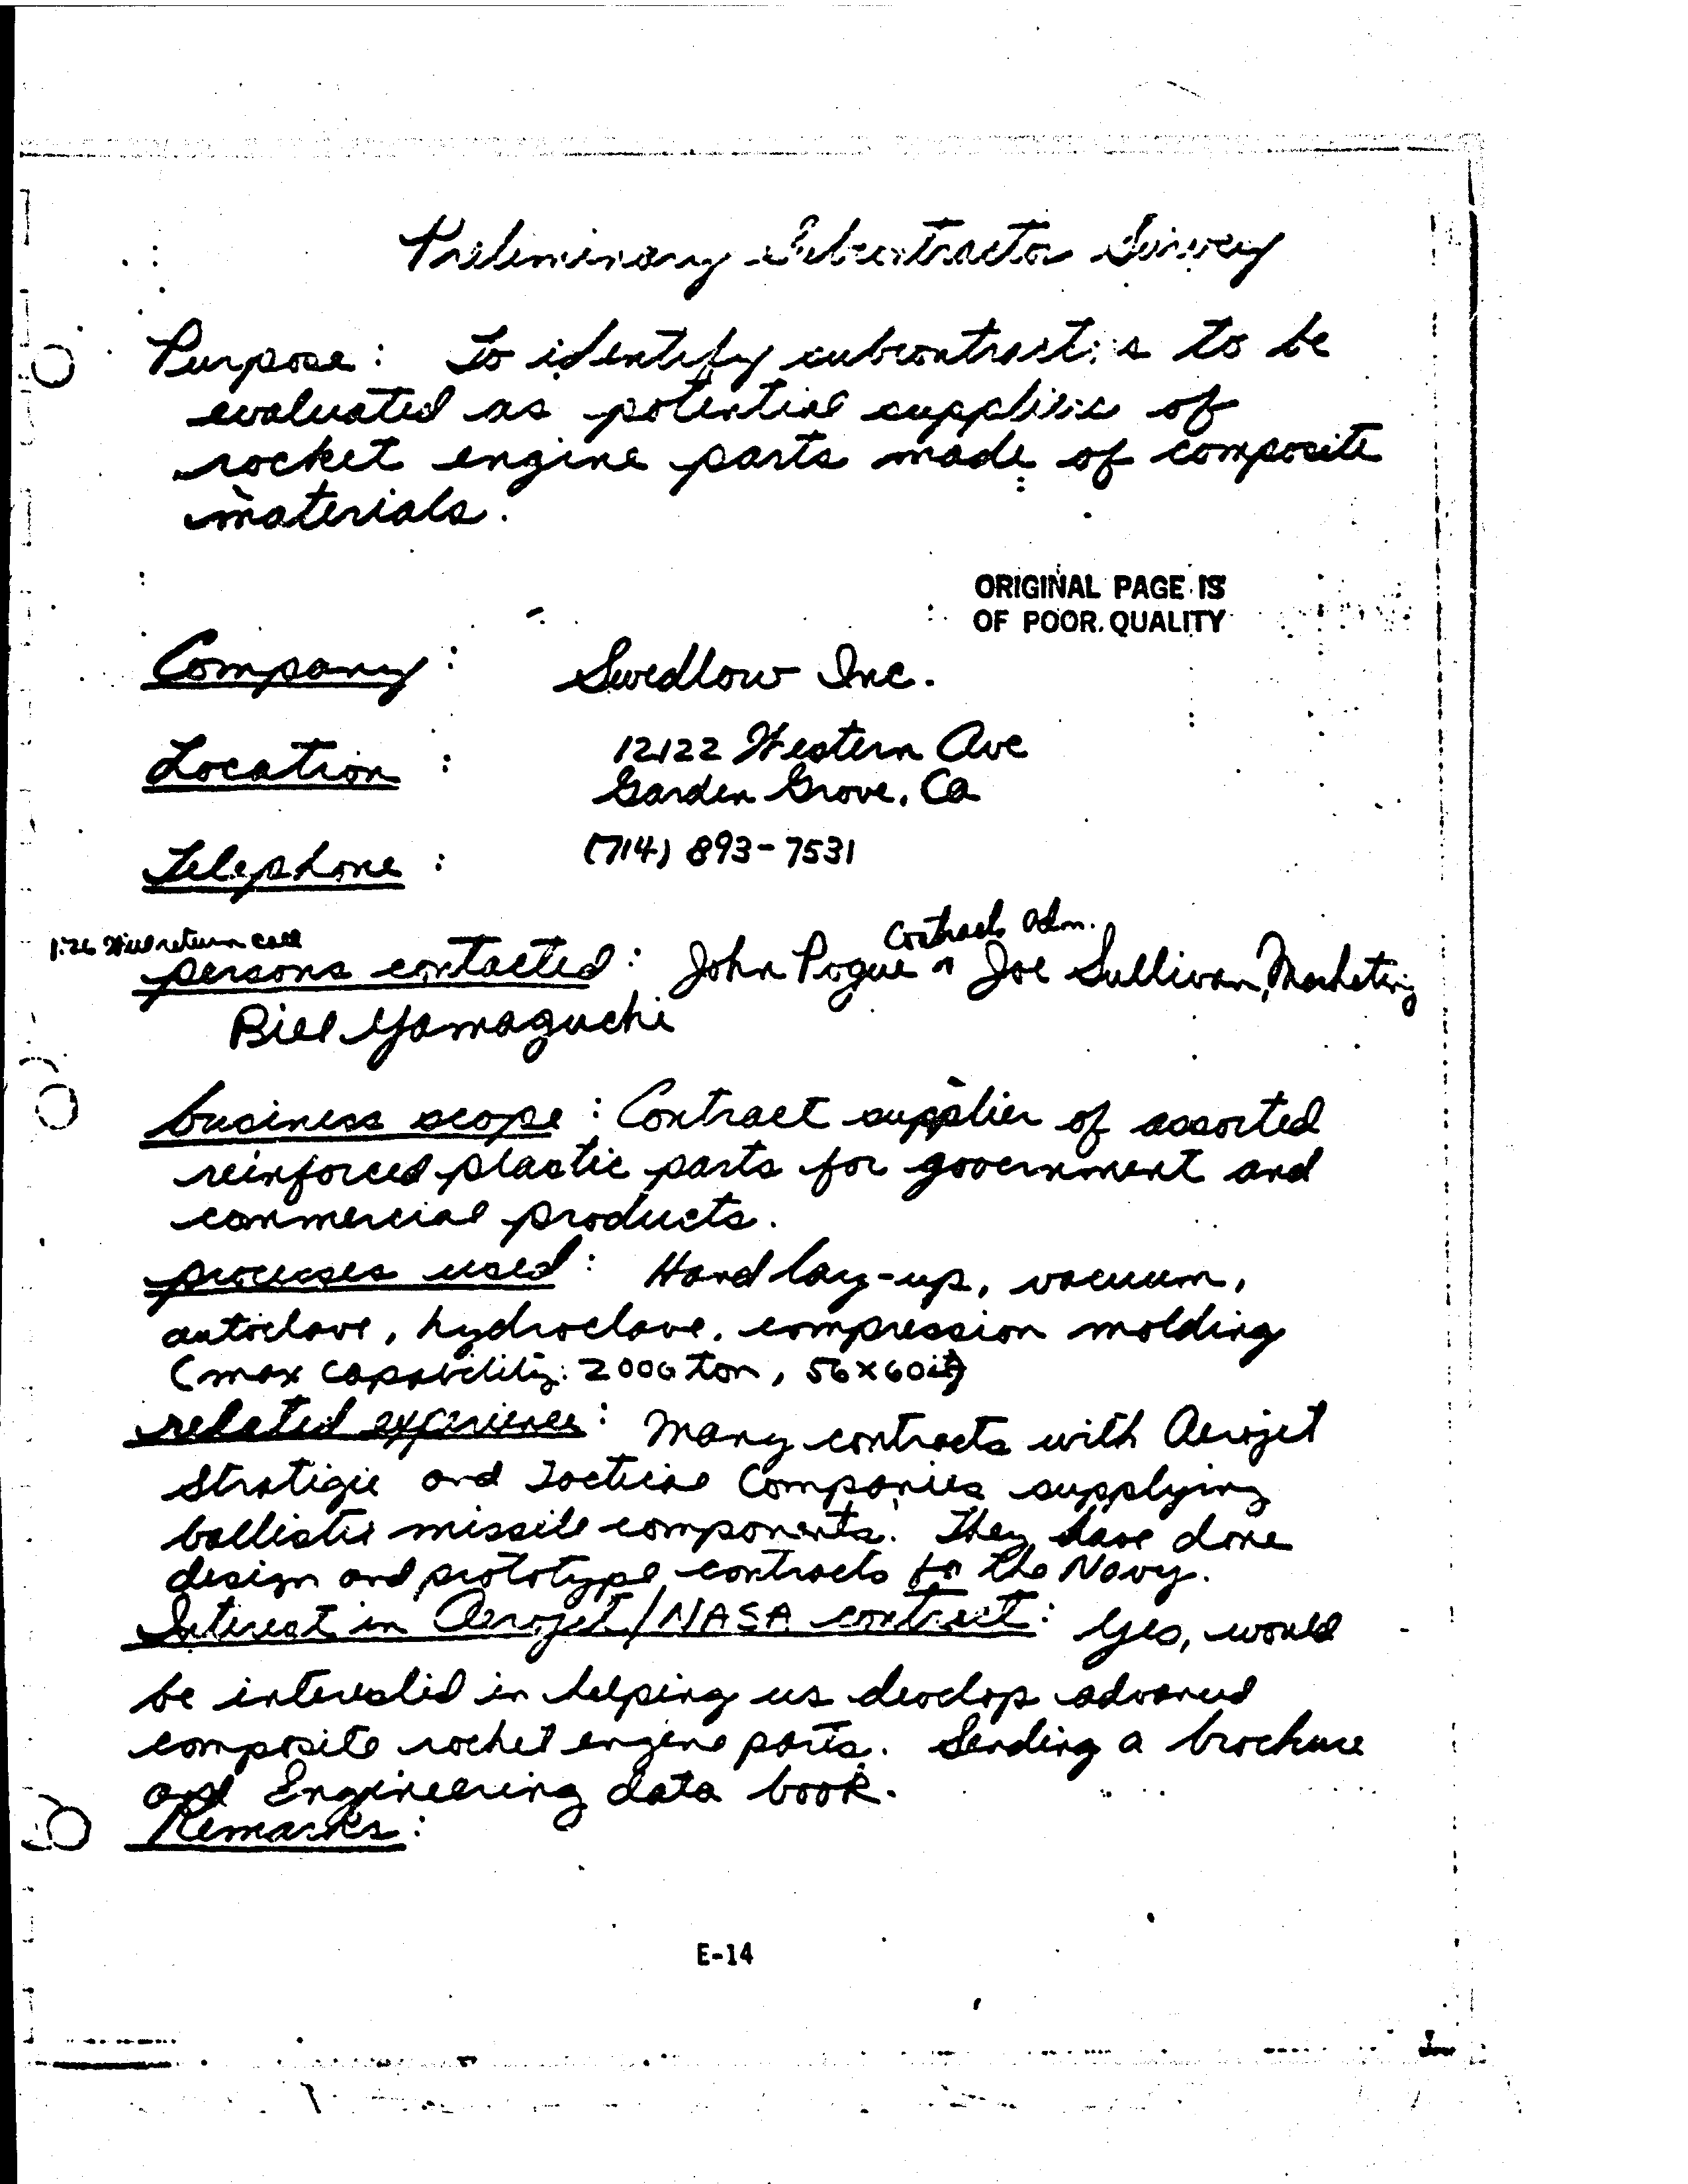 Preliminary Subcontractor Survey
Purpose: To identify subcontractors to be
evaluated as potential suppliers of
rocket engine parts made of composite
materials.
ORIGINAL PAGE IS
OF POOR QUALITY
Company: Swedlow Inc.
Location: 12122 Western Ave
Garden Grove, Ca
Telephone: (714) 893-7531
1:26 Will return call
Contracts Adm.
persons contacted: John Pogue or Joe Sullivan, Marketing
Bill Yamaguchi
business scope: Contract supplier of assorted
reinforced plastic parts for government and
commercial products.
processes used: Hand lay-up, vacuum,
autoclave, hydroclave, compression molding
(max capability: 2000 ton, 56x60in)
related experience: Many contracts with Aerojet
Stratigic and Tactical Companies supplying
ballistic missile components. They have done
design and prototype contracts for the Navy.
Interest in Aerojet/NASA contract: Yes, would
be interested in helping us develop advanced
composite rocket engine parts. Sending a brochure
and Engineering data book.
Remarks:
E-14